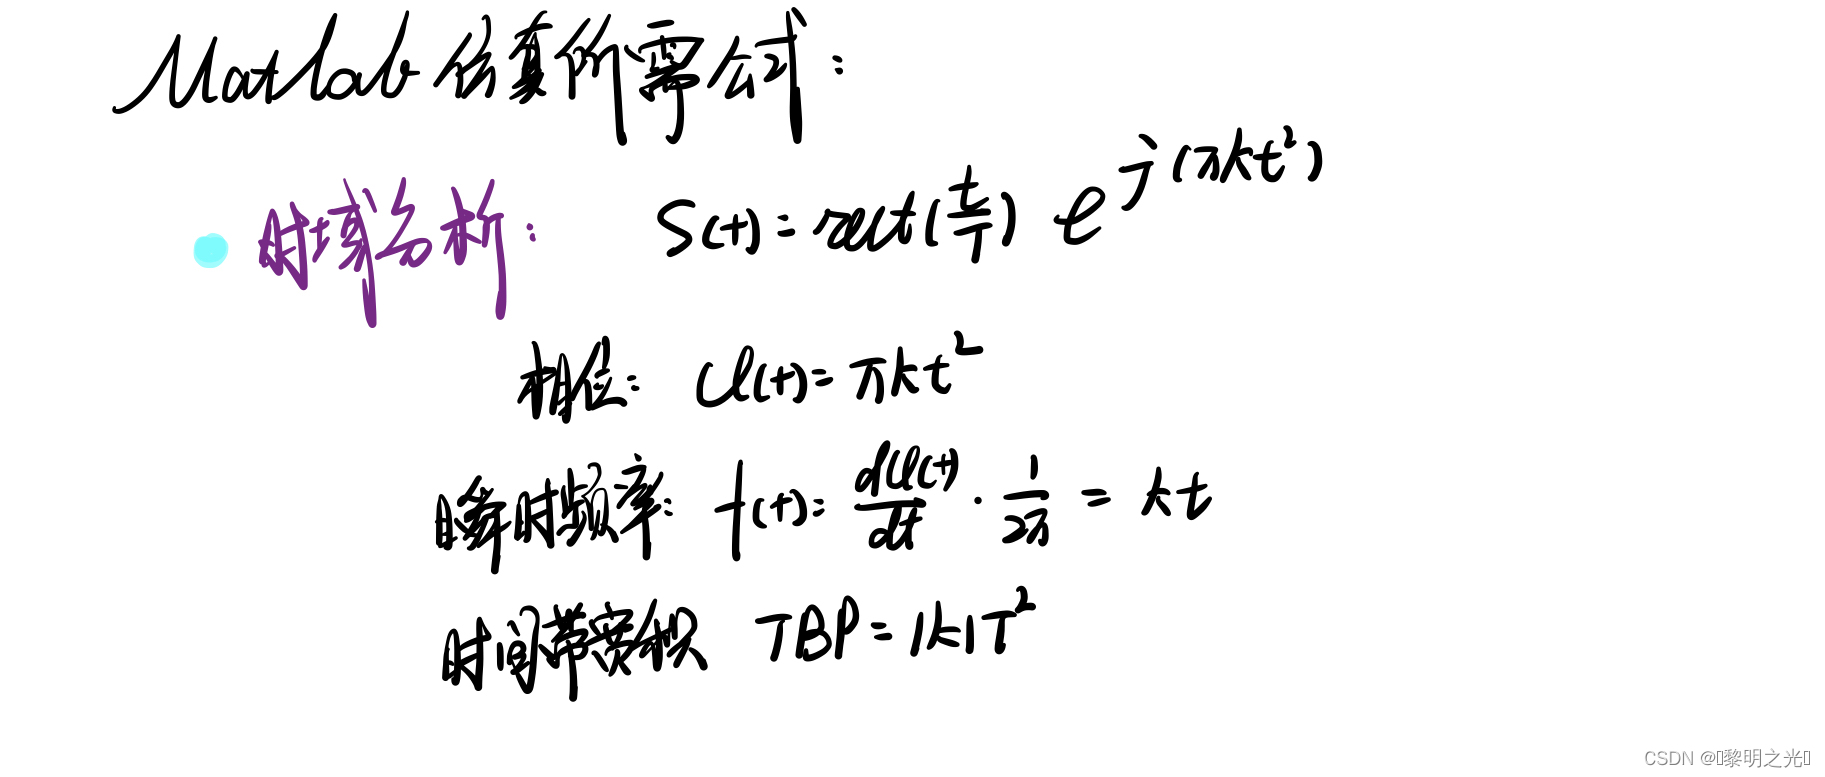 Matlab 仿真所需公式：
时域分析： S(t) = rect(t/T) e^{j(πkt²)}
相位： φ(t) = πkt²
瞬时频率： f(t) = dφ(t)/dt · 1/2π = kt
时间带宽积 TBP = |k|T²
CSDN @黎明之光